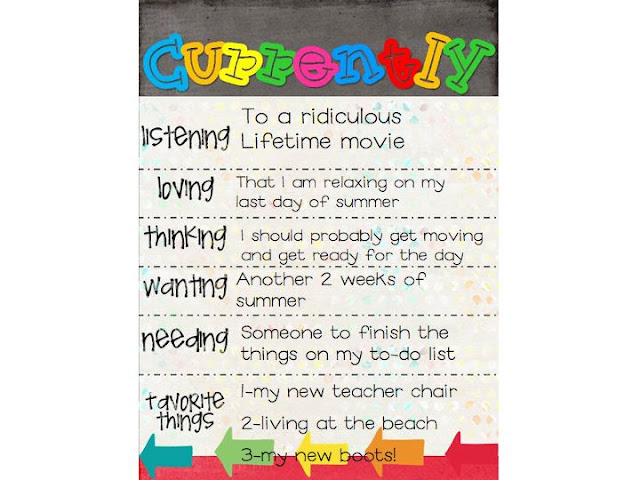 Currently
listening
To a ridiculous
Lifetime movie
loving
That I am relaxing on my
last day of summer
thinking
I should probably get moving
and get ready for the day
wanting
Another 2 weeks of
summer
needing
Someone to finish the
things on my to-do list
favorite
things
1-my new teacher chair
2-living at the beach
3-my new boots!